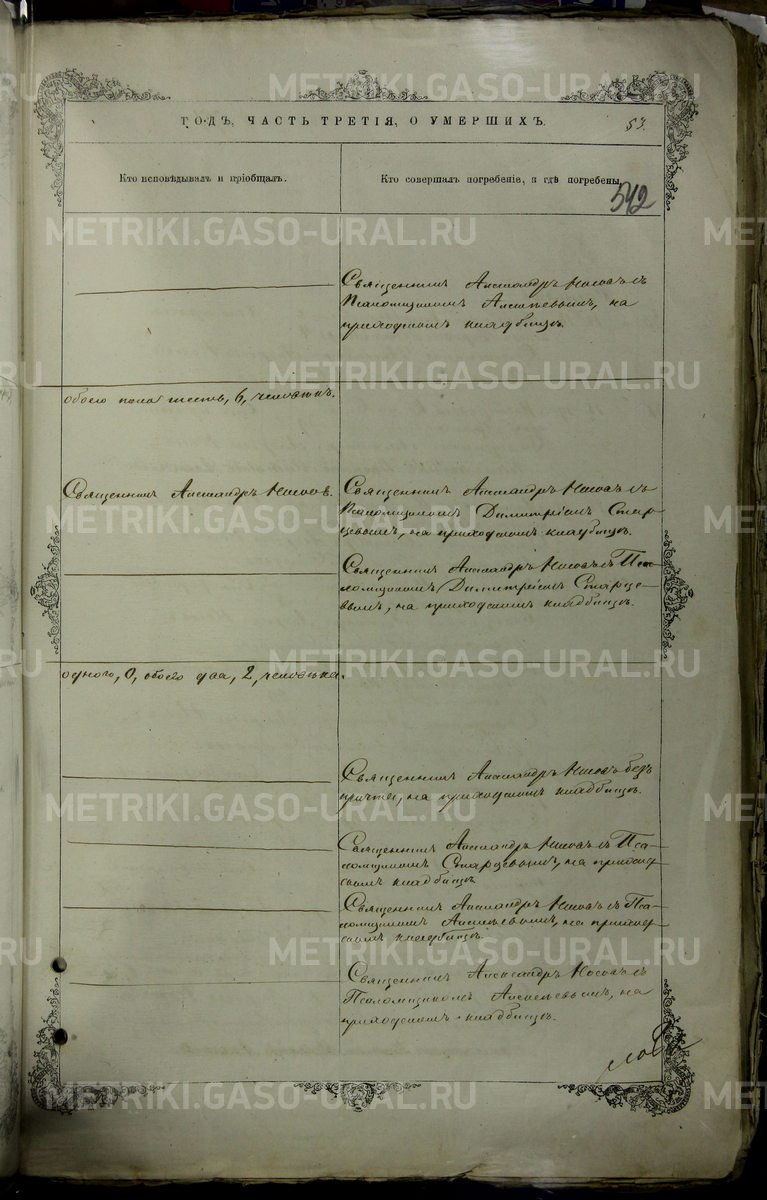 METRIKI.GASO-URAL.RU
ГОДЪ, ЧАСТЬ ТРЕТІЯ, О УМЕРШИХЪ.
53.
Кто исповѣдывалъ и пріобщалъ.
Кто совершалъ погребеніе, и гдѣ погребены.
542
Священникъ Александръ Носовъ съ
Псаломщикомъ Алексѣевымъ, на
приходскомъ кладбищѣ.
обоего пола шесть, 6, человѣкъ.
Священникъ Александръ Носов.
Священникъ Александръ Носовъ съ
Псаломщикомъ Димитріемъ Стар
цевымъ, на приходскомъ кладбищѣ.
Священникъ Александръ Носовъ съ Пса
ломщикомъ Димитріемъ Старце-
вымъ, на приходскомъ кладбищѣ.
одного, 0, обоего два, 2, человѣка.
Священникъ Александръ Носовъ безъ
причта, на приходскомъ кладбищѣ.
Священникъ Александръ Носовъ съ Пса-
ломщикомъ Старцевымъ, на приход
скомъ кладбищѣ
Священникъ Александръ Носовъ съ Пса-
ломщикомъ Алексѣевымъ, на приход
скомъ кладбищѣ.
Священникъ Александръ Носовъ съ
Псаломщикомъ Алексѣевымъ, на
приходскомъ кладбищѣ.